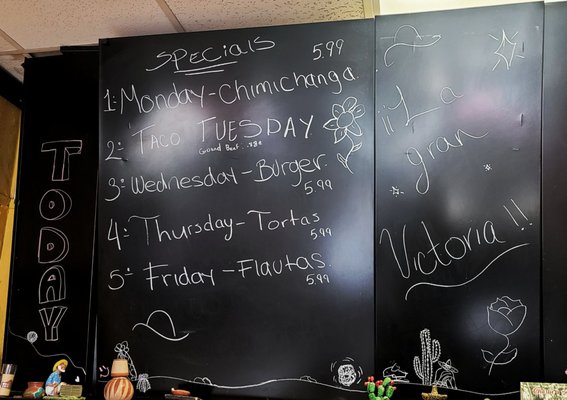 TODAY
Specials
5.99
1: Monday - Chimichanga
2: TACO TUESDAY
Ground Beef
3: Wednesday - Burger
5.99
4: Thursday - Tortas
5.99
5: Friday - Flautas
5.99
¡¡La
gran
Victoria!!